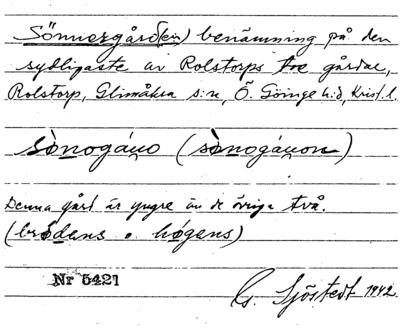 Sönnergård(en) benämning på den
sydligaste av Rolstorps tre gårdar,
Rolstorp, Glimåkra s:n, Ö. Göinge h:d, Krist. l.
sònogáɹo (sònogáɹon)
Denna gård är yngre än de övriga två.
(brödens o. högens)
Nr 5421
G. Sjöstedt 1942